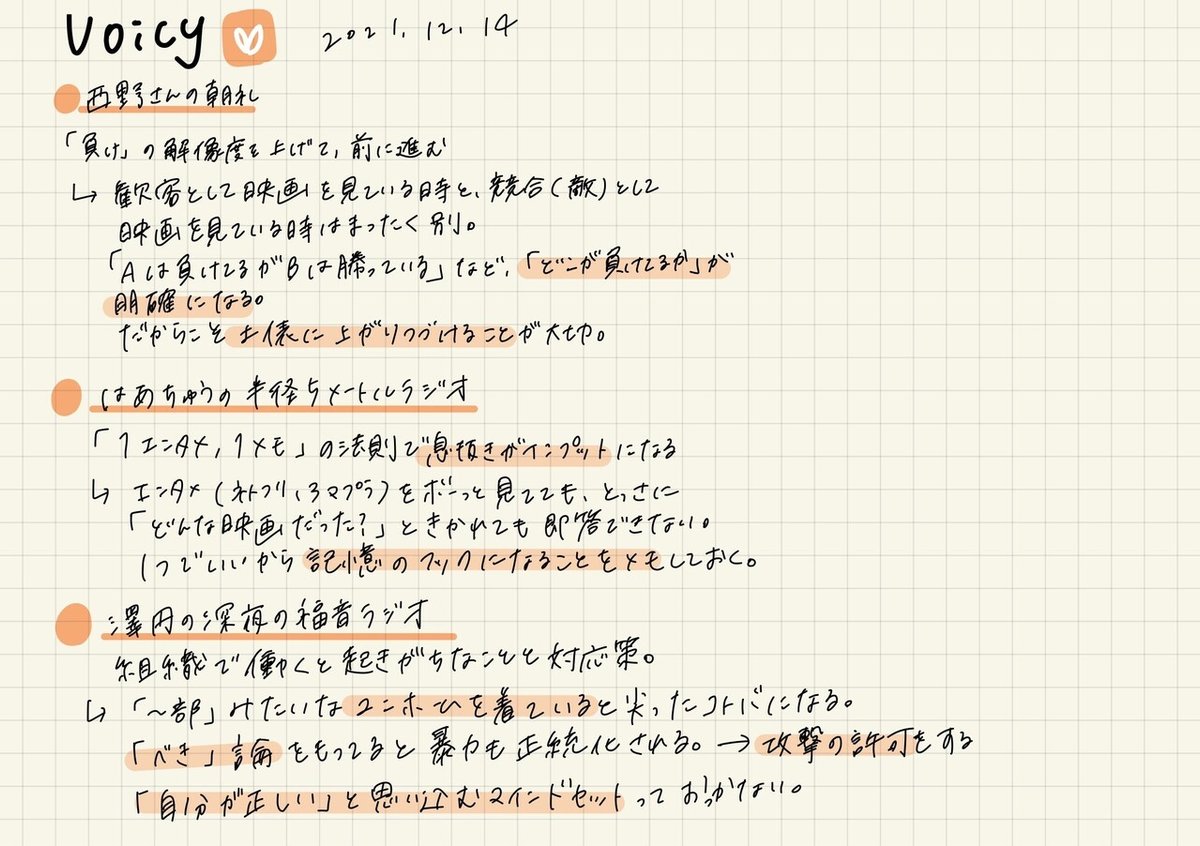 Voicy 2021.12.14
西野さんの朝礼
「負け」の解像度を上げて、前に進む
↳ 観客として映画を見ている時と、競合(敵)として
映画を見ている時はまったく別。
「Aは負けてるがBは勝っている」など、「どこが負けてるか」が
明確になる。
だからこそ土俵に上がりつづけることが大切。
はあちゅうの半径5メートルラジオ
「1エンタメ,1メモ」の法則で息抜きがインプットになる
↳ エンタメ(ネトフリ,アマプラ)をボーっと見てても、とっさに
「どんな映画だった?」ときかれても即答できない。
1つでいいから記憶のフックになることをメモしておく。
澤円の深夜の福音ラジオ
組織で働くと起きがちなことと対応策。
↳ 「〜部」みたいなユニホームを着ていると尖ったコトバになる。
「べき」論をもってると暴力も正統化される。→攻撃の許可をする
「自分が正しい」と思い込むマインドセットっておっかない。